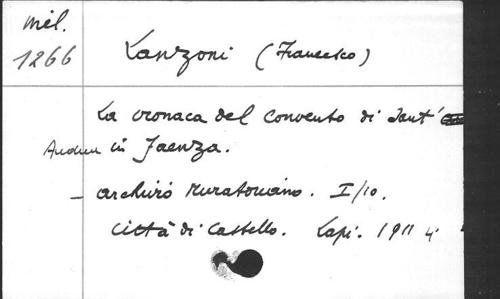 mél.
1266
Lanzoni (Francesco)
La cronaca del convento di Sant'
Andrea in Faenza.
– archivio muratoriano. I/10.
Città di Castello. Lapi. 1911 4°